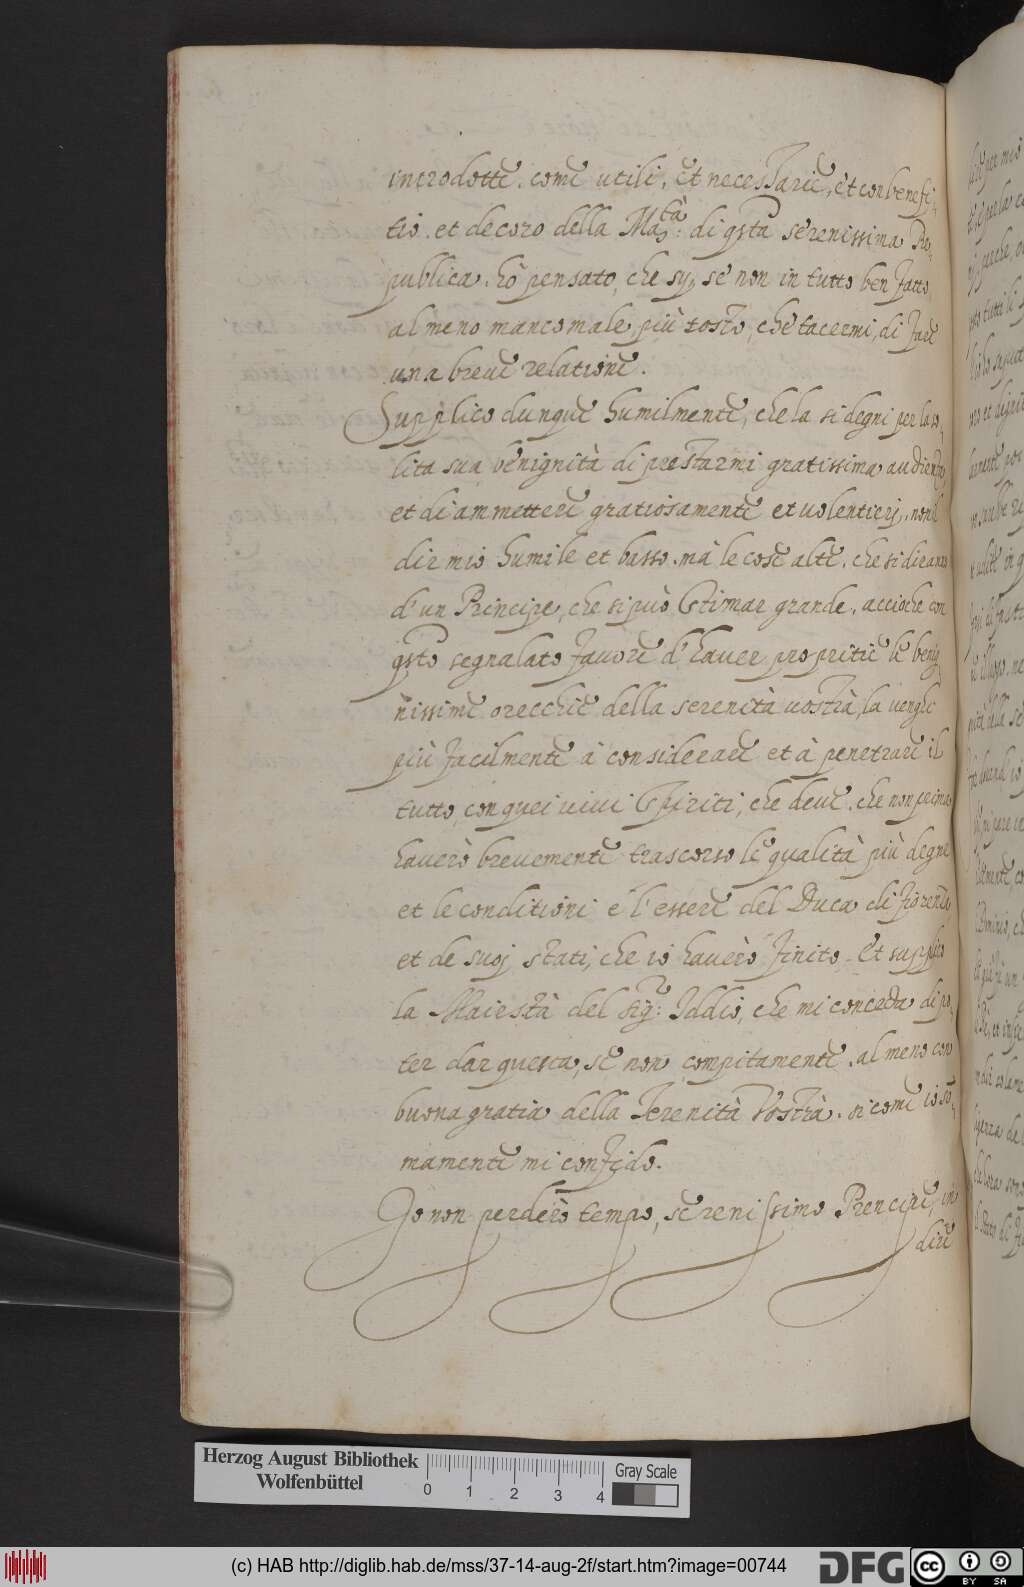 introdotte. come utili. et necessarie, et con benefi,
tio. et decoro della Ma.tà di q̃sta serenissima Re,
publica. hò pensato, che sij, se non in tutto ben fatto,
al meno manco male, più tosto, che tacermi, di fare
una breue relatione.
Supplico dunque humilmente, che la si degni per la so,
lita sua benignità di prestarmi gratissima audienza,
et di ammettere gratiosamente et uolentierj, non il
dir mio humile et basso. mà le cose alte, che si diranno
d'un Principe, che si può stimar grande, accioche con
q̃sto segnalato fauore d'hauer propritie le benig,
nissime orecchie della serenità uostra, la uenghi
più facilmente à considerare et à penetrare il
tutto, con quei uiui spiriti, che deue. che non prima
hauerò breuemente trascorso le qualità più degne
et le conditioni e l'essere del Duca di fiorenza
et de suoj stati, che io hauerò finito. Et supplico
la Maiestà del sig.r Iddio, che mi conceda di po,
ter dar questa, se non compitamente. al meno con
buona gratia della Serenità Vostra. si come io som,
mamente mi confido.
Io non perderò tempo, serenissimo Prencipe, in
dire
Herzog August Bibliothek
Wolfenbüttel
0 1 2 3 4
Gray Scale
(c) HAB http://diglib.hab.de/mss/37-14-aug-2f/start.htm?image=00744
DFG
cc BY SA